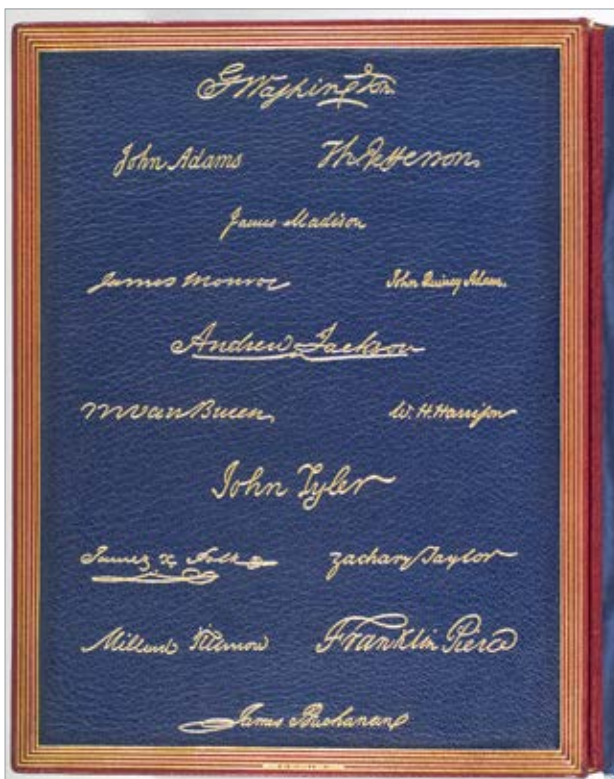 G Washington
John Adams Th Jefferson
James Madison
James Monroe John Quincy Adams.
Andrew Jackson
M Van Buren, W. H. Harrison
John Tyler
James K Polk Zachary Taylor
Millard Fillmore Franklin Pierce
James Buchanan